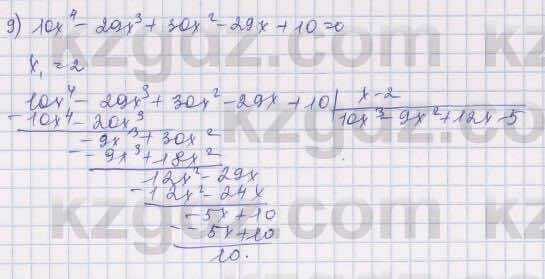 9) 10x⁴ - 29x³ + 30x² - 29x + 10 = 0
x₁ = 2
10x⁴ - 29x³ + 30x² - 29x + 10 | x - 2
- 10x⁴ - 20x³ 10x³ - 9x² + 12x - 5
- 9x³ + 30x²
- - 9x³ + 18x²
12x² - 29x
- 12x² - 24x
- 5x + 10
- - 5x + 10
10.
kzgdz.com